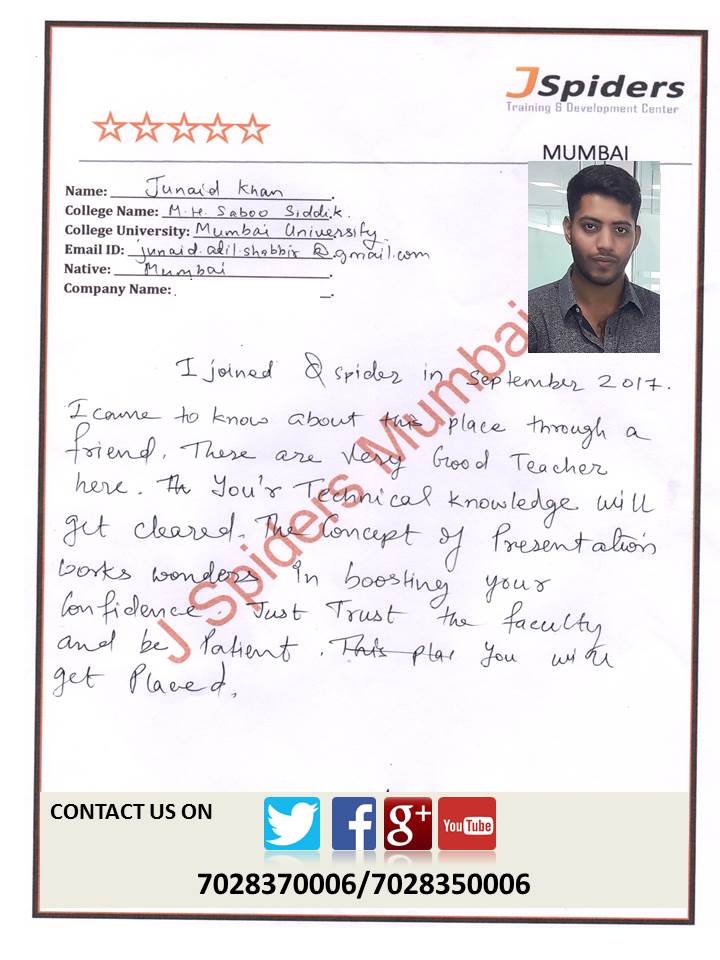 JSpiders
Training & Development Center
MUMBAI
Name: Junaid Khan
College Name: M.H. Saboo Siddik.
College University: Mumbai University
Email ID: junaid.adil.shabbir@gmail.com
Native: Mumbai
Company Name:
I joined Q spider in September 2017.
I came to know about this place through a
friend. These are very Good Teacher
here. Th You'r Technical knowledge will
get cleared. The Concept of Presentation
works wonders in boosting your
Confidence. Just Trust the faculty
and be Patient. This plac You will
get Placed.
J Spiders Mumbai
CONTACT US ON
You Tube
7028370006/7028350006